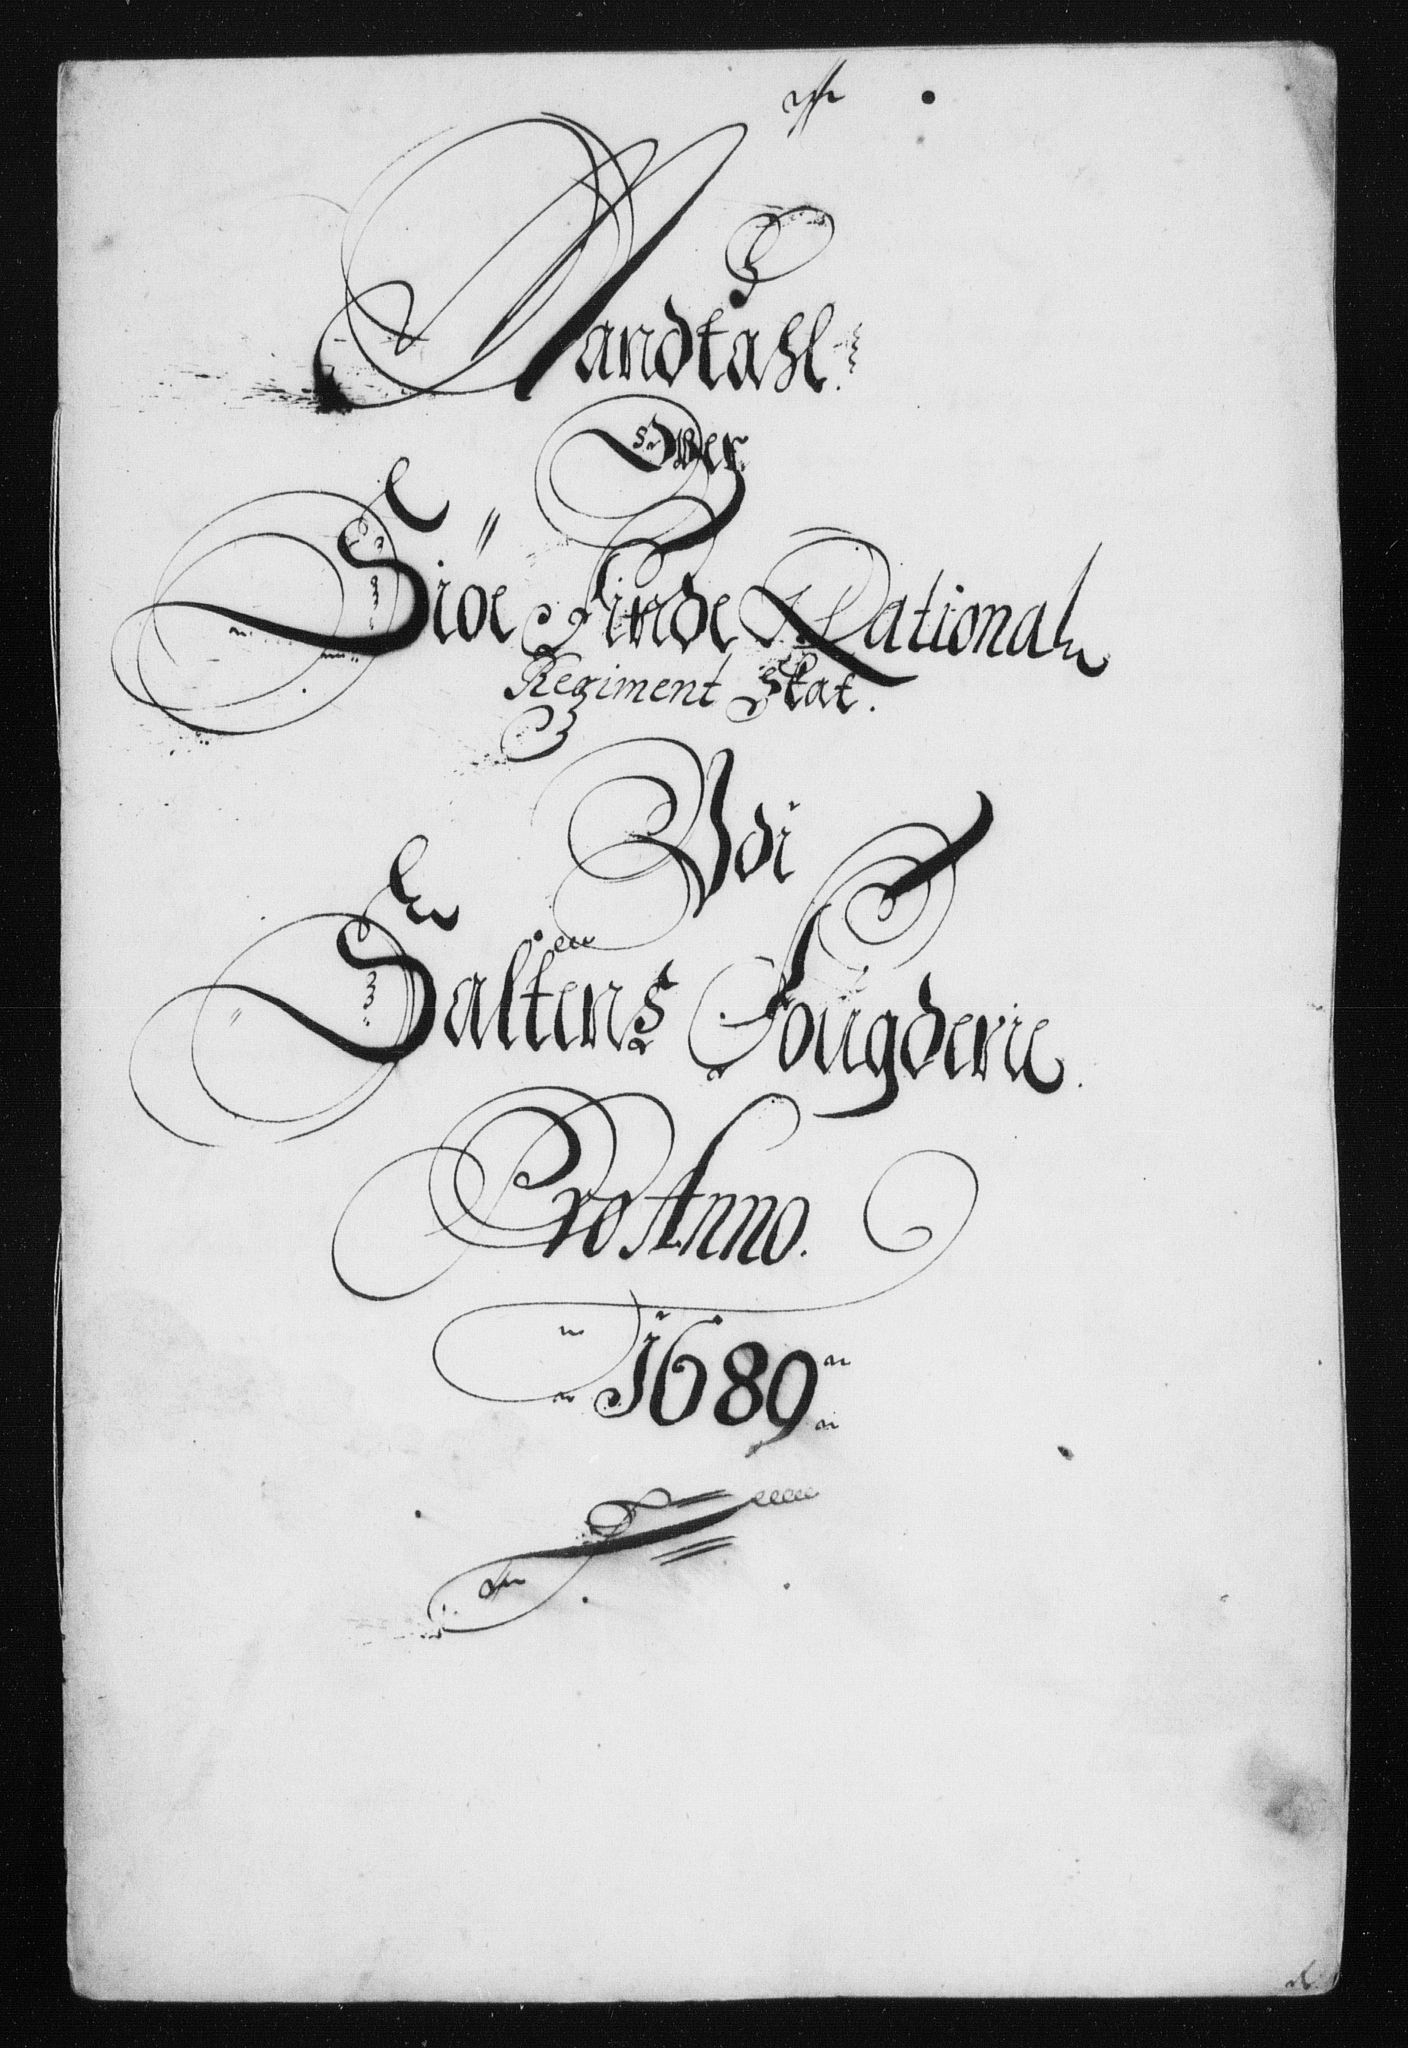 Mandtahl
Over
Siøe Finde National
Regiment Skat.
Udi
Saltens Fougderie.
Pro Anno.
1689